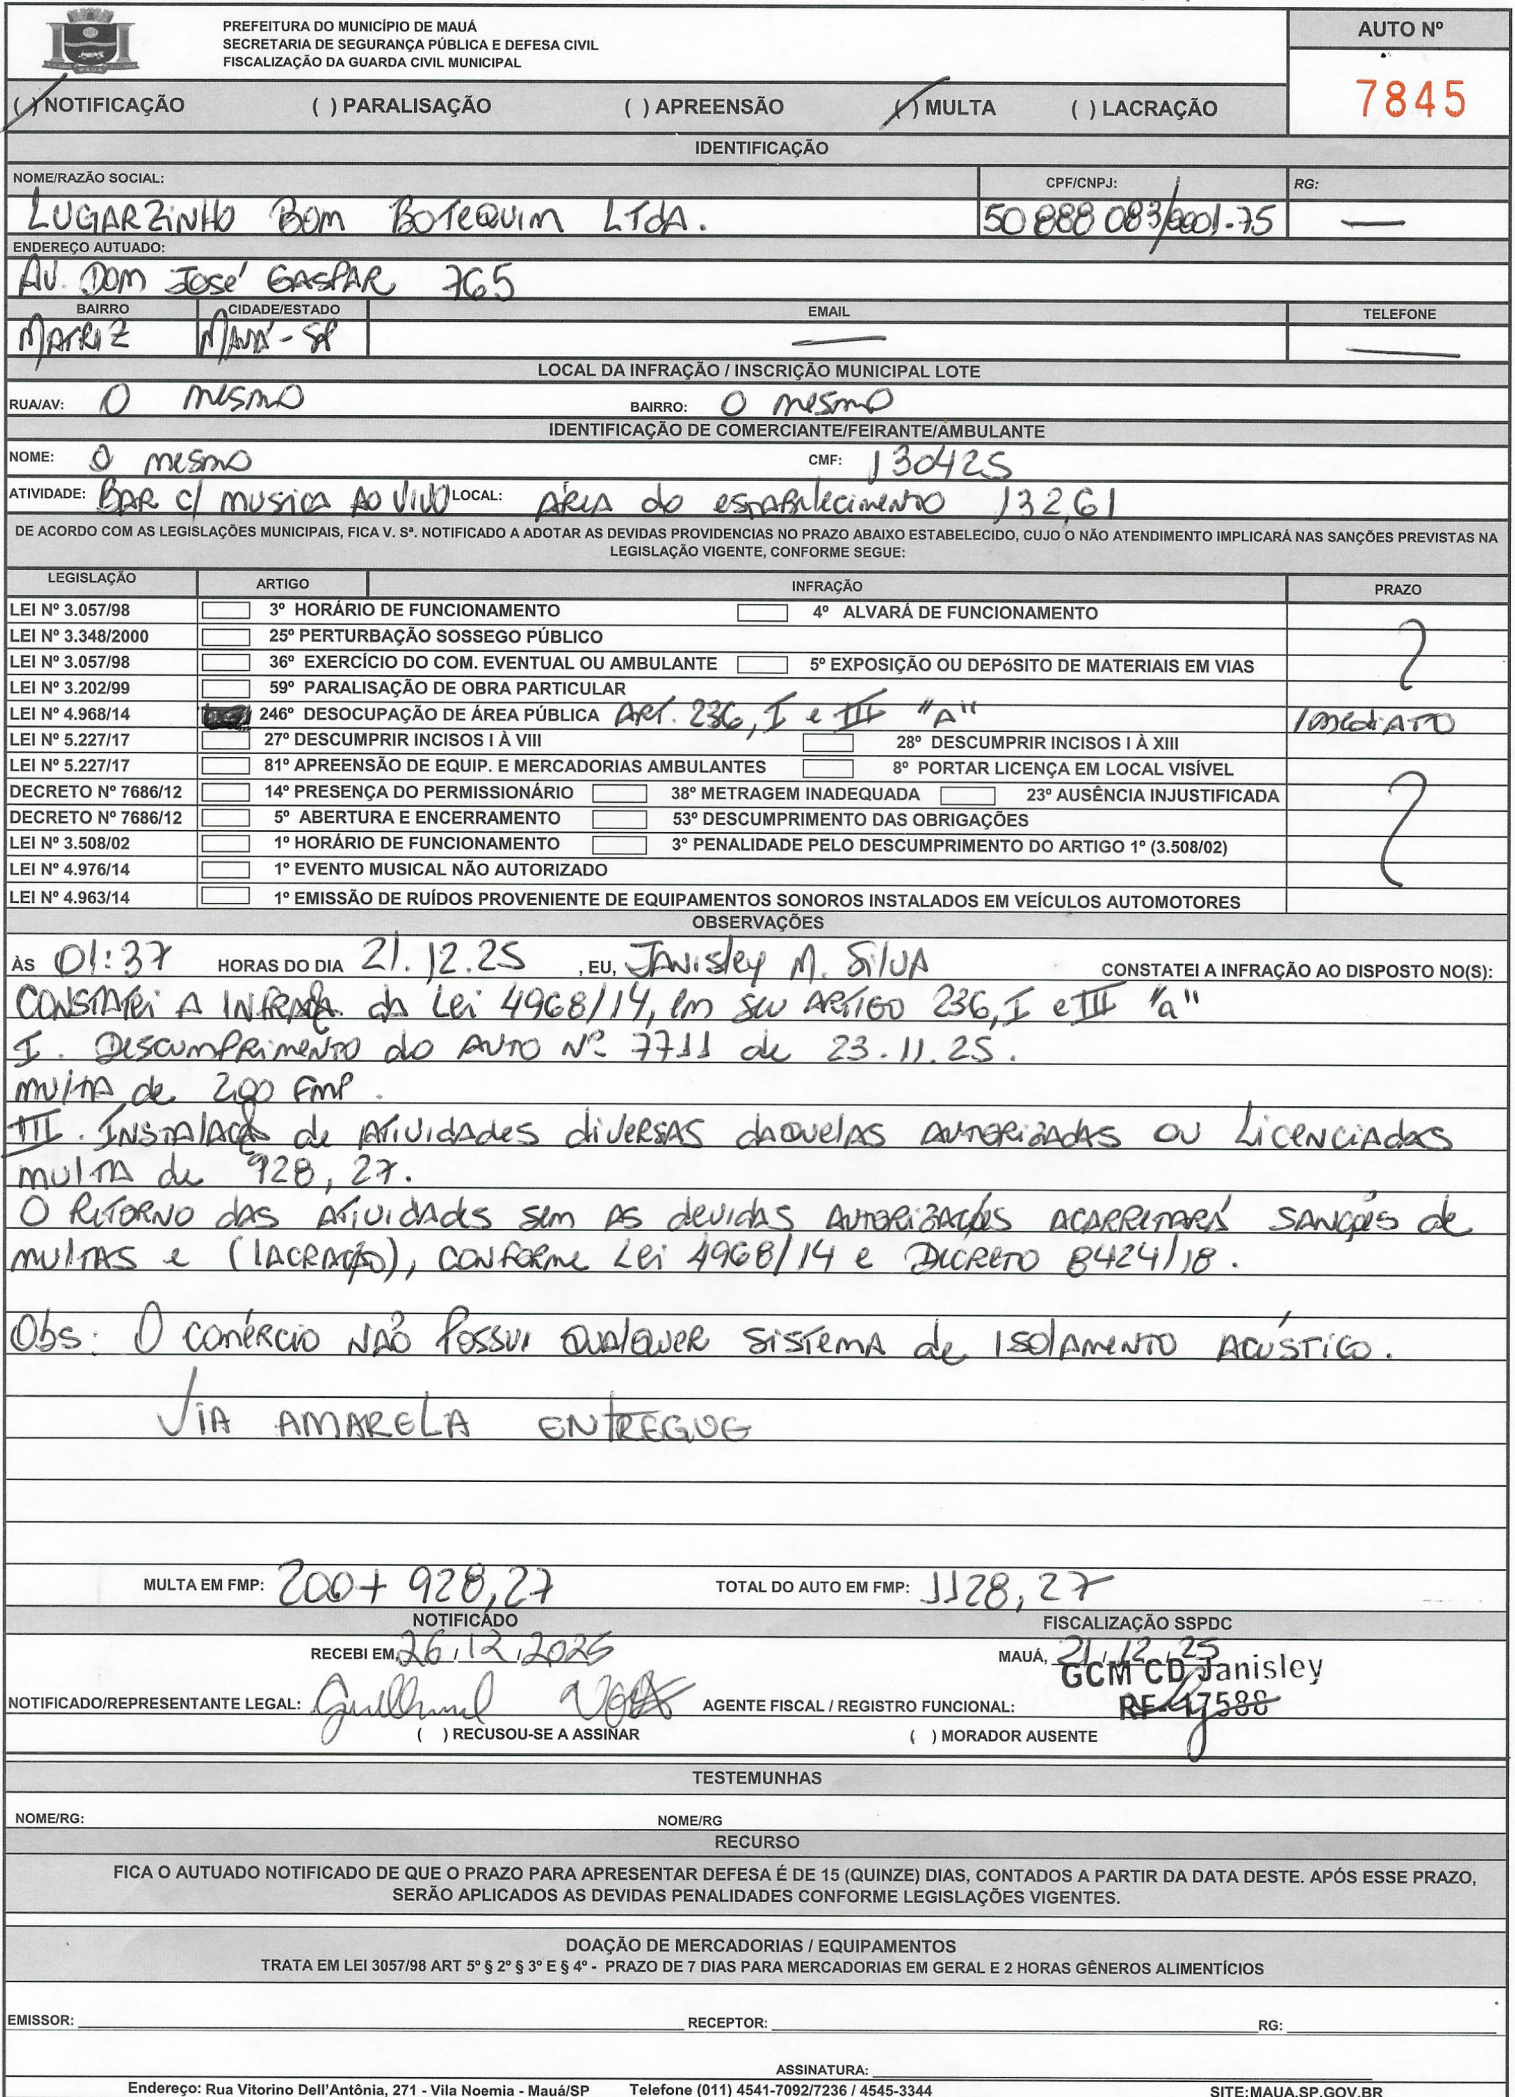 PREFEITURA DO MUNICÍPIO DE MAUÁ
SECRETARIA DE SEGURANÇA PÚBLICA E DEFESA CIVIL
FISCALIZAÇÃO DA GUARDA CIVIL MUNICIPAL
AUTO Nº
7845
( ) NOTIFICAÇÃO ( ) PARALISAÇÃO ( ) APREENSÃO ( ) MULTA ( ) LACRAÇÃO
IDENTIFICAÇÃO
NOME/RAZÃO SOCIAL: CPF/CNPJ: RG:
LUGARZINHO BOM BOTEQUIM LTDA. 50 888 083/0001-75 —
ENDEREÇO AUTUADO:
AV. DOM JOSÉ GASPAR 765
BAIRRO CIDADE/ESTADO EMAIL TELEFONE
MATRIZ MAUÁ - SP — —
LOCAL DA INFRAÇÃO / INSCRIÇÃO MUNICIPAL LOTE
RUA/AV: O mesmo BAIRRO: O mesmo
IDENTIFICAÇÃO DE COMERCIANTE/FEIRANTE/AMBULANTE
NOME: O mesmo CMF: 130425
ATIVIDADE: BAR C/ MUSICA AO VIVO LOCAL: ÁREA do estabelecimento 132,61
DE ACORDO COM AS LEGISLAÇÕES MUNICIPAIS, FICA V. Sª. NOTIFICADO A ADOTAR AS DEVIDAS PROVIDENCIAS NO PRAZO ABAIXO ESTABELECIDO, CUJO O NÃO ATENDIMENTO IMPLICARÁ NAS SANÇÕES PREVISTAS NA
LEGISLAÇÃO VIGENTE, CONFORME SEGUE:
LEGISLAÇÃO ARTIGO INFRAÇÃO PRAZO
LEI Nº 3.057/98 3º HORÁRIO DE FUNCIONAMENTO 4º ALVARÁ DE FUNCIONAMENTO
LEI Nº 3.348/2000 25º PERTURBAÇÃO SOSSEGO PÚBLICO
LEI Nº 3.057/98 36º EXERCÍCIO DO COM. EVENTUAL OU AMBULANTE 5º EXPOSIÇÃO OU DEPóSITO DE MATERIAIS EM VIAS
LEI Nº 3.202/99 59º PARALISAÇÃO DE OBRA PARTICULAR
LEI Nº 4.968/14 246º DESOCUPAÇÃO DE ÁREA PÚBLICA ART. 236, I e III "A" Imediato
LEI Nº 5.227/17 27º DESCUMPRIR INCISOS I À VIII 28º DESCUMPRIR INCISOS I À XIII
LEI Nº 5.227/17 81º APREENSÃO DE EQUIP. E MERCADORIAS AMBULANTES 8º PORTAR LICENÇA EM LOCAL VISÍVEL
DECRETO Nº 7686/12 14º PRESENÇA DO PERMISSIONÁRIO 38º METRAGEM INADEQUADA 23º AUSÊNCIA INJUSTIFICADA
DECRETO Nº 7686/12 5º ABERTURA E ENCERRAMENTO 53º DESCUMPRIMENTO DAS OBRIGAÇÕES
LEI Nº 3.508/02 1º HORÁRIO DE FUNCIONAMENTO 3º PENALIDADE PELO DESCUMPRIMENTO DO ARTIGO 1º (3.508/02)
LEI Nº 4.976/14 1º EVENTO MUSICAL NÃO AUTORIZADO
LEI Nº 4.963/14 1º EMISSÃO DE RUÍDOS PROVENIENTE DE EQUIPAMENTOS SONOROS INSTALADOS EM VEÍCULOS AUTOMOTORES
OBSERVAÇÕES
ÀS 01:37 HORAS DO DIA 21.12.25 , EU, Janisley M. Silva CONSTATEI A INFRAÇÃO AO DISPOSTO NO(S):
CONSTATEI A INFRAÇÃO da Lei 4968/14, em seu ARTIGO 236, I e III "a"
I. Descumprimento do AUTO Nº 7711 de 23.11.25.
multa de 200 FMP.
III. Instalação de atividades diversas daquelas autorizadas ou licenciadas
multa de 928,27.
O retorno das atividades sem as devidas autorizações acarretará sanções de
multas e (lacração), conforme Lei 4968/14 e Decreto 8424/18.
Obs: O comércio não possui qualquer sistema de isolamento acústico.
VIA AMARELA ENTREGUE
MULTA EM FMP: 200 + 928,27 TOTAL DO AUTO EM FMP: 1128,27
NOTIFICADO FISCALIZAÇÃO SSPDC
RECEBI EM, 26/12/2025 MAUÁ, 21/12/25
GCM CD Janisley
NOTIFICADO/REPRESENTANTE LEGAL: AGENTE FISCAL / REGISTRO FUNCIONAL: RF 17588
( ) RECUSOU-SE A ASSINAR ( ) MORADOR AUSENTE
TESTEMUNHAS
NOME/RG: NOME/RG
RECURSO
FICA O AUTUADO NOTIFICADO DE QUE O PRAZO PARA APRESENTAR DEFESA É DE 15 (QUINZE) DIAS, CONTADOS A PARTIR DA DATA DESTE. APÓS ESSE PRAZO,
SERÃO APLICADOS AS DEVIDAS PENALIDADES CONFORME LEGISLAÇÕES VIGENTES.
DOAÇÃO DE MERCADORIAS / EQUIPAMENTOS
TRATA EM LEI 3057/98 ART 5º § 2º § 3º E § 4º - PRAZO DE 7 DIAS PARA MERCADORIAS EM GERAL E 2 HORAS GÊNEROS ALIMENTÍCIOS
EMISSOR: RECEPTOR: RG:
ASSINATURA:
Endereço: Rua Vitorino Dell'Antônia, 271 - Vila Noemia - Mauá/SP Telefone (011) 4541-7092/7236 / 4545-3344 SITE:MAUA.SP.GOV.BR